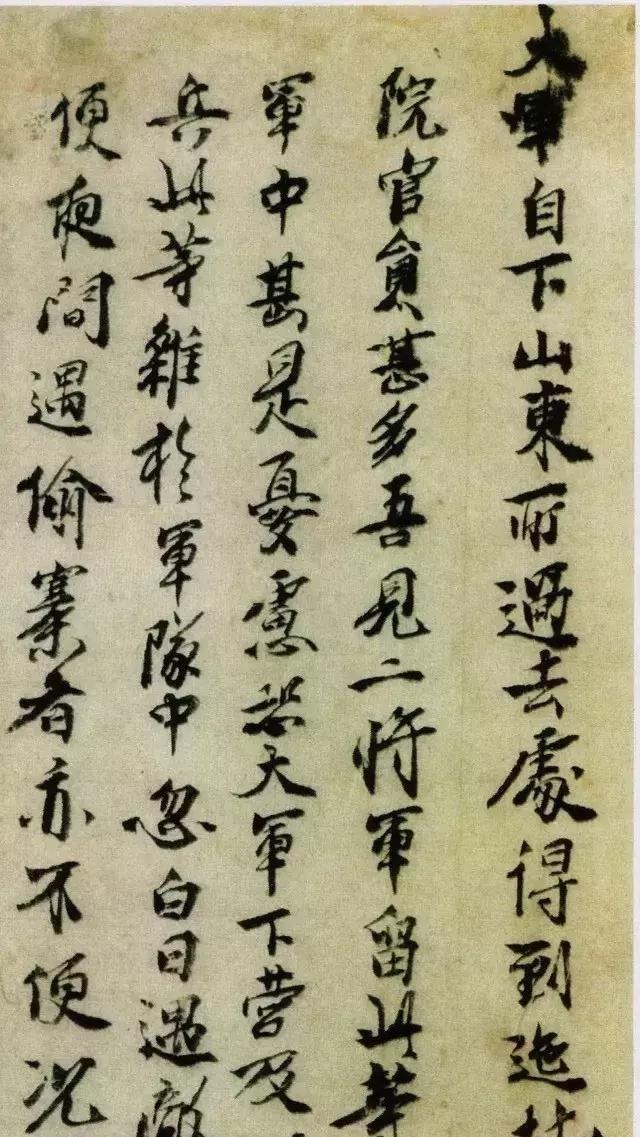 大軍自下山東所過去處得到迤
院官員甚多吾見二將軍留此等
軍中甚是憂慮恐大軍下營及
兵此等雜於軍隊中忽白日遇敵
便夜間遇偷寨者亦不便況